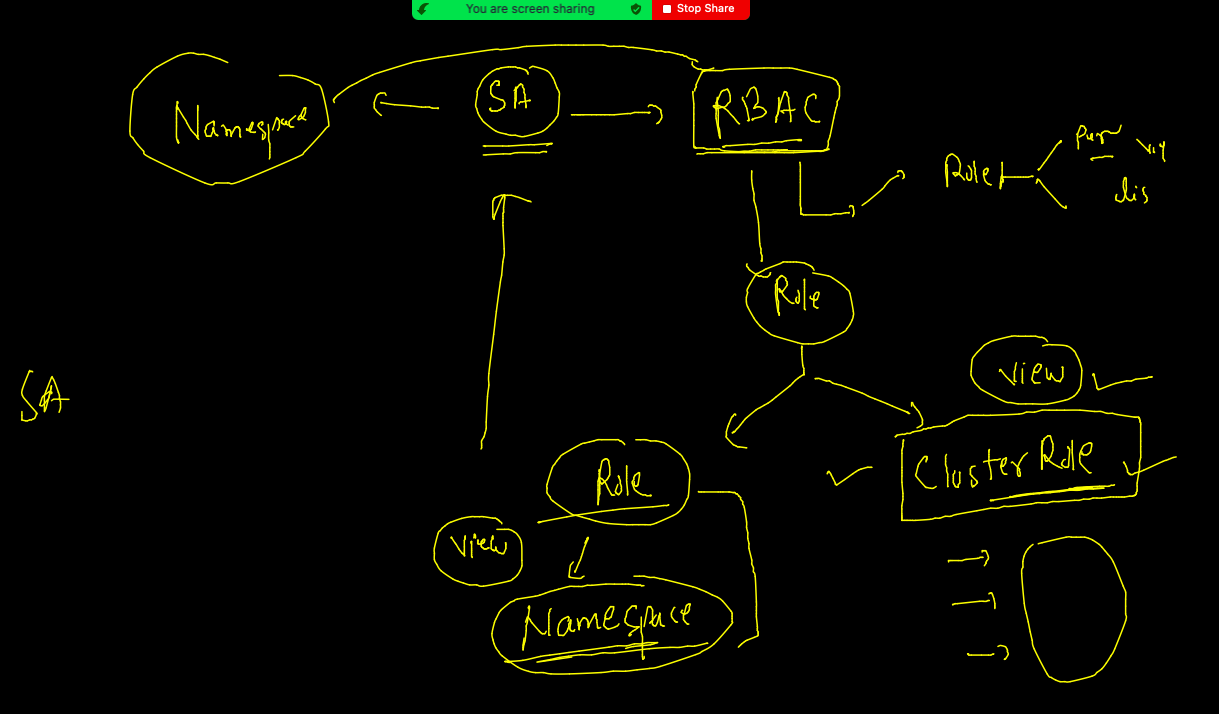 You are screen sharing Stop Share
Namespace
SA
RBAC
Role
Role
View
SA
ClusterRole
Role
View
Namespace